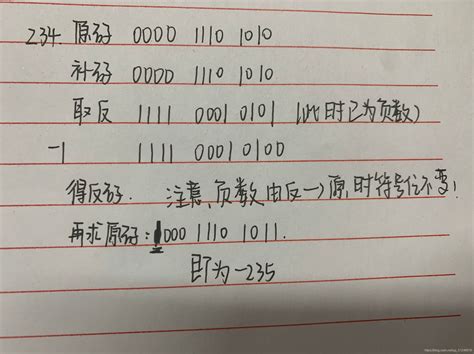 234. 原码 0000 1110 1010
补码 0000 1110 1010
取反 1111 0001 0101 (此时已为负数)
-1 1111 0001 0100
得反码. 注意,负数由反→原,时符号位不变!
再求原码:1000 1110 1011.
即为-235